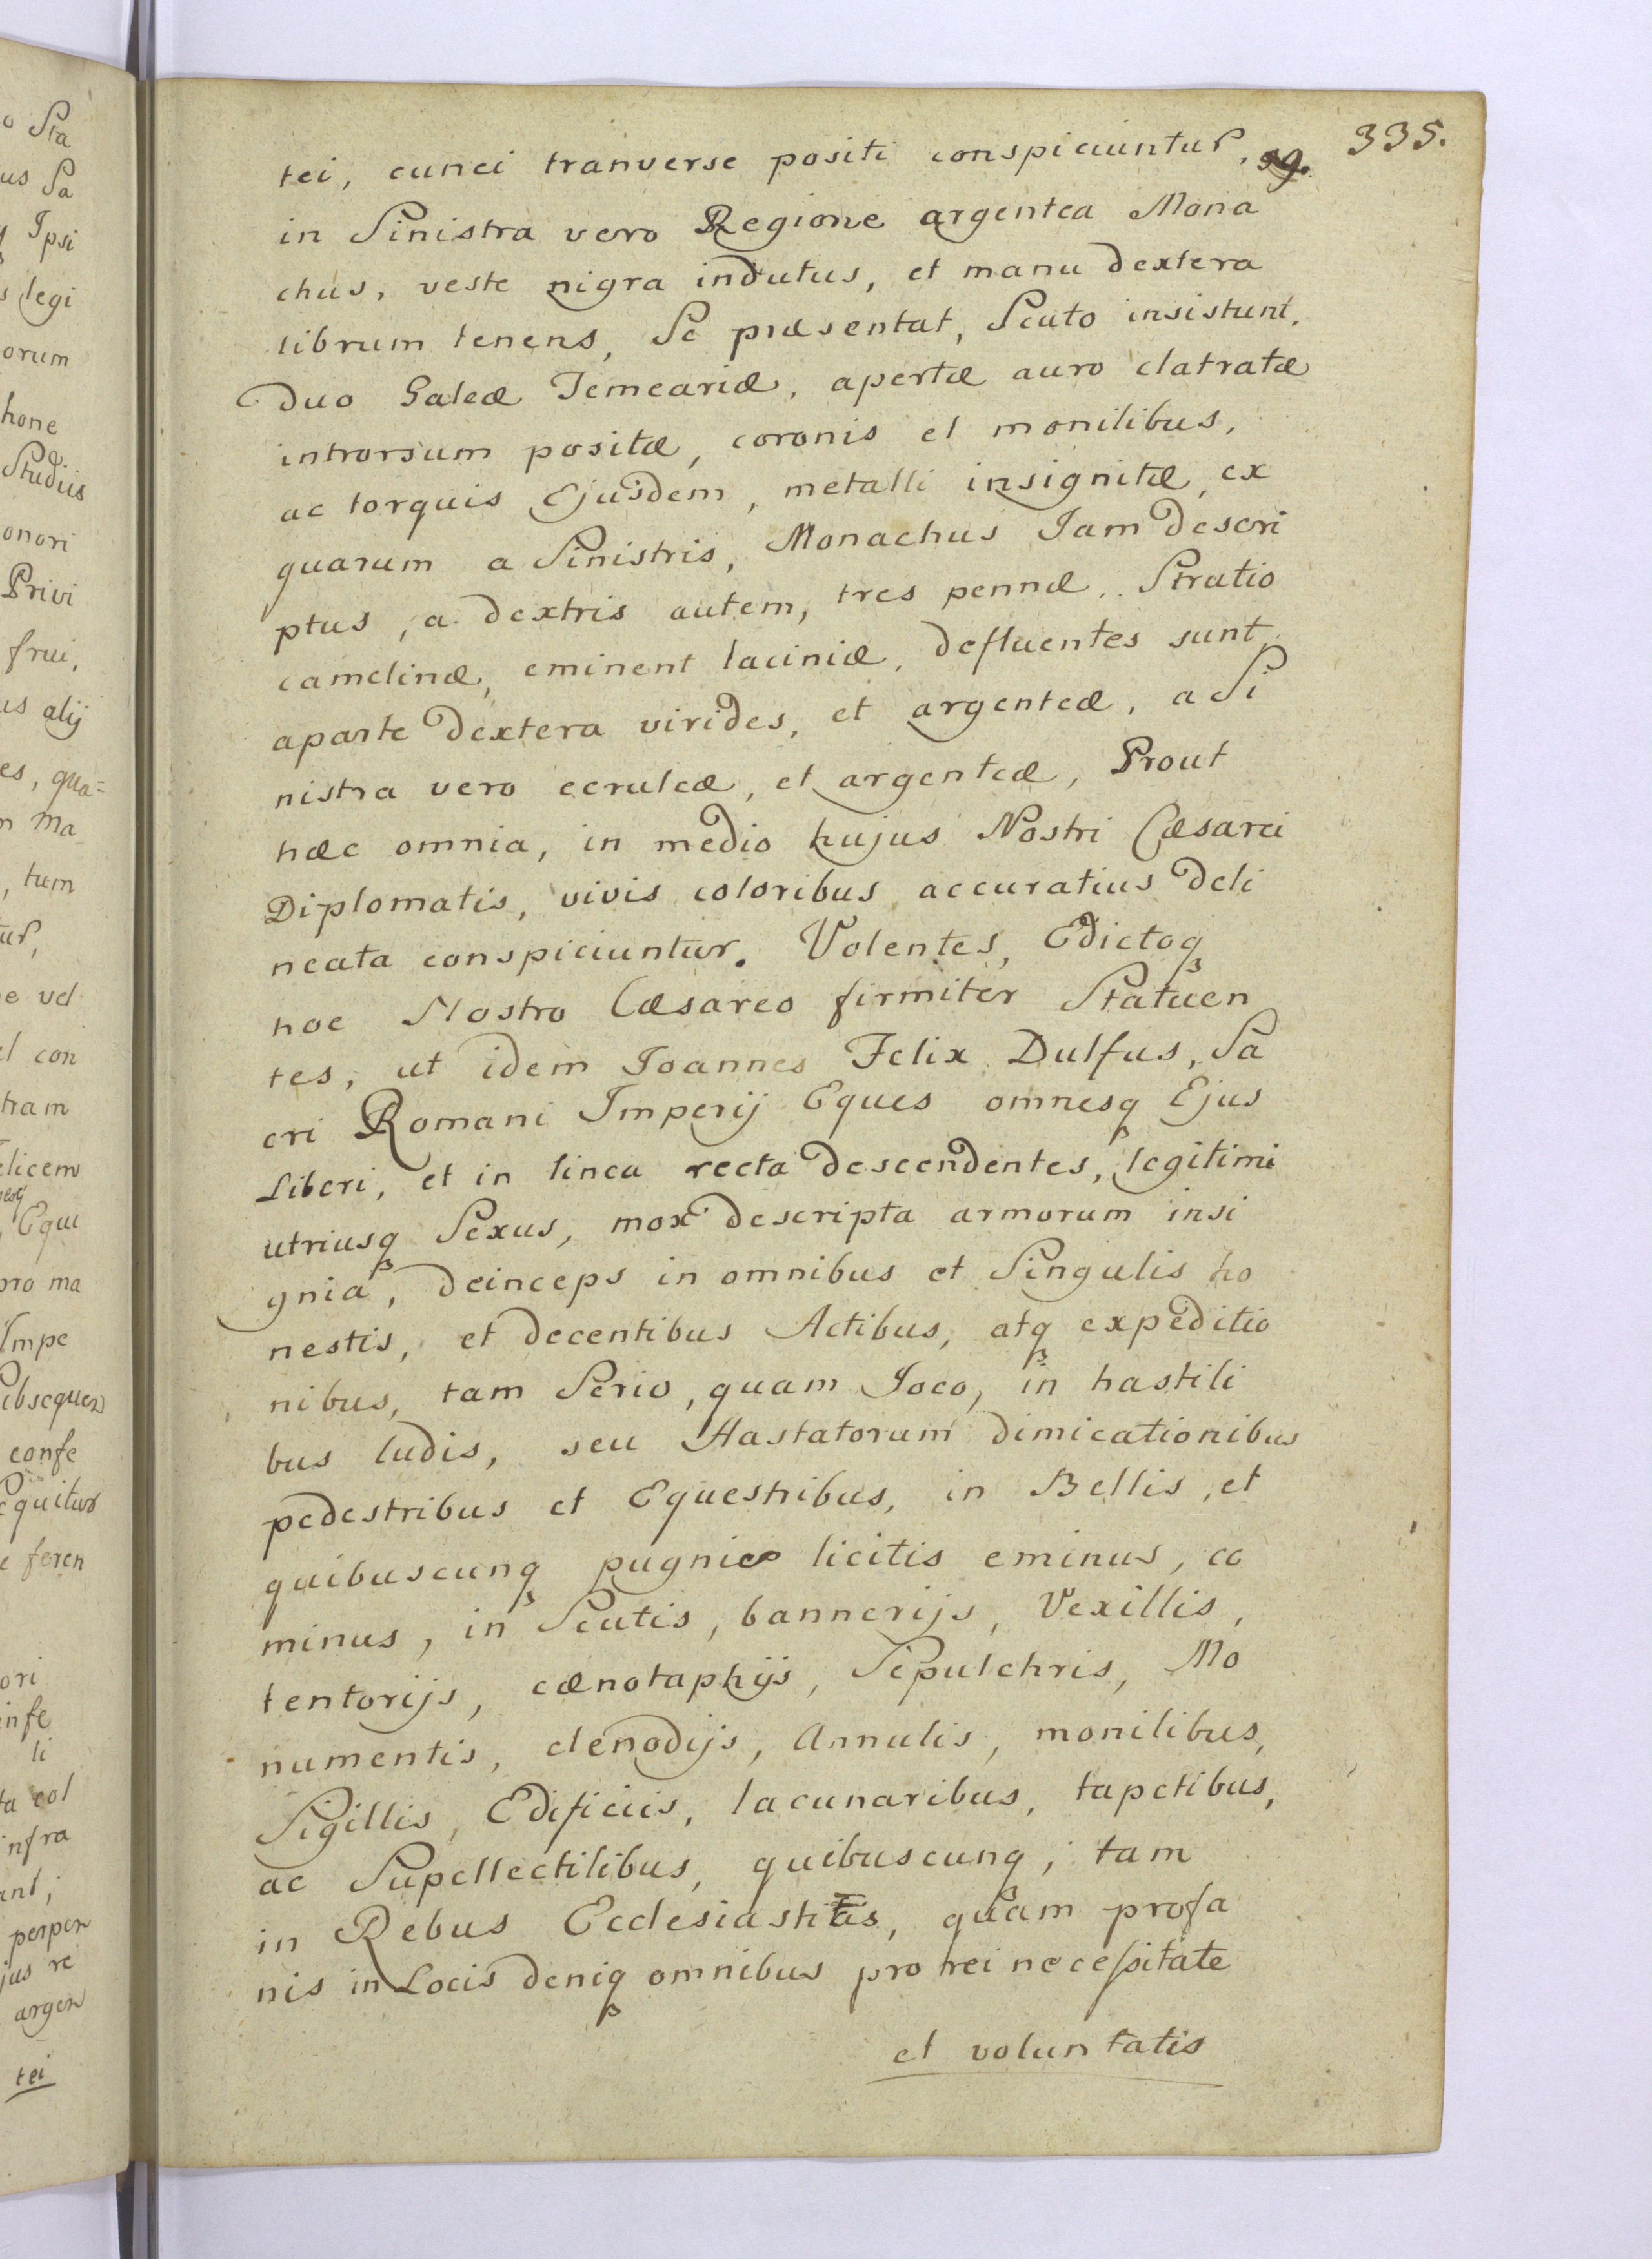 335.
tei, cunei tranverse positi conspiciuntur,
in Sinistra vero Regione argentea Mona
chus, veste nigra indutus, et manu dextera
librum tenens, Se præsentat, Scuto insistunt,
duo Galeæ Temeariæ, apertæ auro clatratæ
introrsum positæ, coronis et monilibus,
ac torquis Ejusdem, metalli insignitæ, ex
quarum a Sinistris, Monachus Iam descri
ptus, a dextris autem, tres pennæ, Strutio
camelinæ, eminent laciniæ, defluentes sunt,
aparte dextera virides, et argenteæ, a Si
nistra vero ceruleæ, et argenteæ, Prout
hæc omnia, in medio hujus Nostri Cæsarei
Diplomatis, vivis coloribus accuratius deli
neata conspiciuntur. Volentes, Edictoq
hoc Nostro Cæsareo firmiter Statuen
tes, ut idem Ioannes Felix Dulfus, Sa
cri Romani Imperij Eques omnesq Ejus
Liberi, et in linea recta descendentes, legitimi
utriusq Sexus, mox descripta armorum insi
gnia, deinceps in omnibus et Singulis ho
nestis, et decentibus Actibus, atq expeditio
nibus, tam Serio, quam Ioco, in hastili
bus ludis, seu Hastatorum dimicationibus
pedestribus et Equestribus, in Bellis, et
quibuscunq pugnis licitis eminus, co
minus, in Scutis, bannerijs, Vexillis,
tentorijs, cænotaphijs, Sepulchris, Mo
numentis, clenodijs, Annulis, monilibus,
Sigillis, Edificiis, lacunaribus, tapetibus,
ac Supellectilibus, quibuscunq, tam
in Rebus Ecclesiastitis, quam profa
nis in Locis deniq omnibus pro rei necessitate
et voluntatis